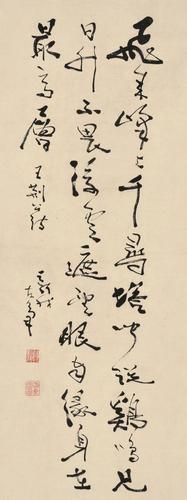 飛來峰上千尋塔聞說鷄鳴見
日升不畏浮雲遮望眼自緣身在
最高層
王荊公詩